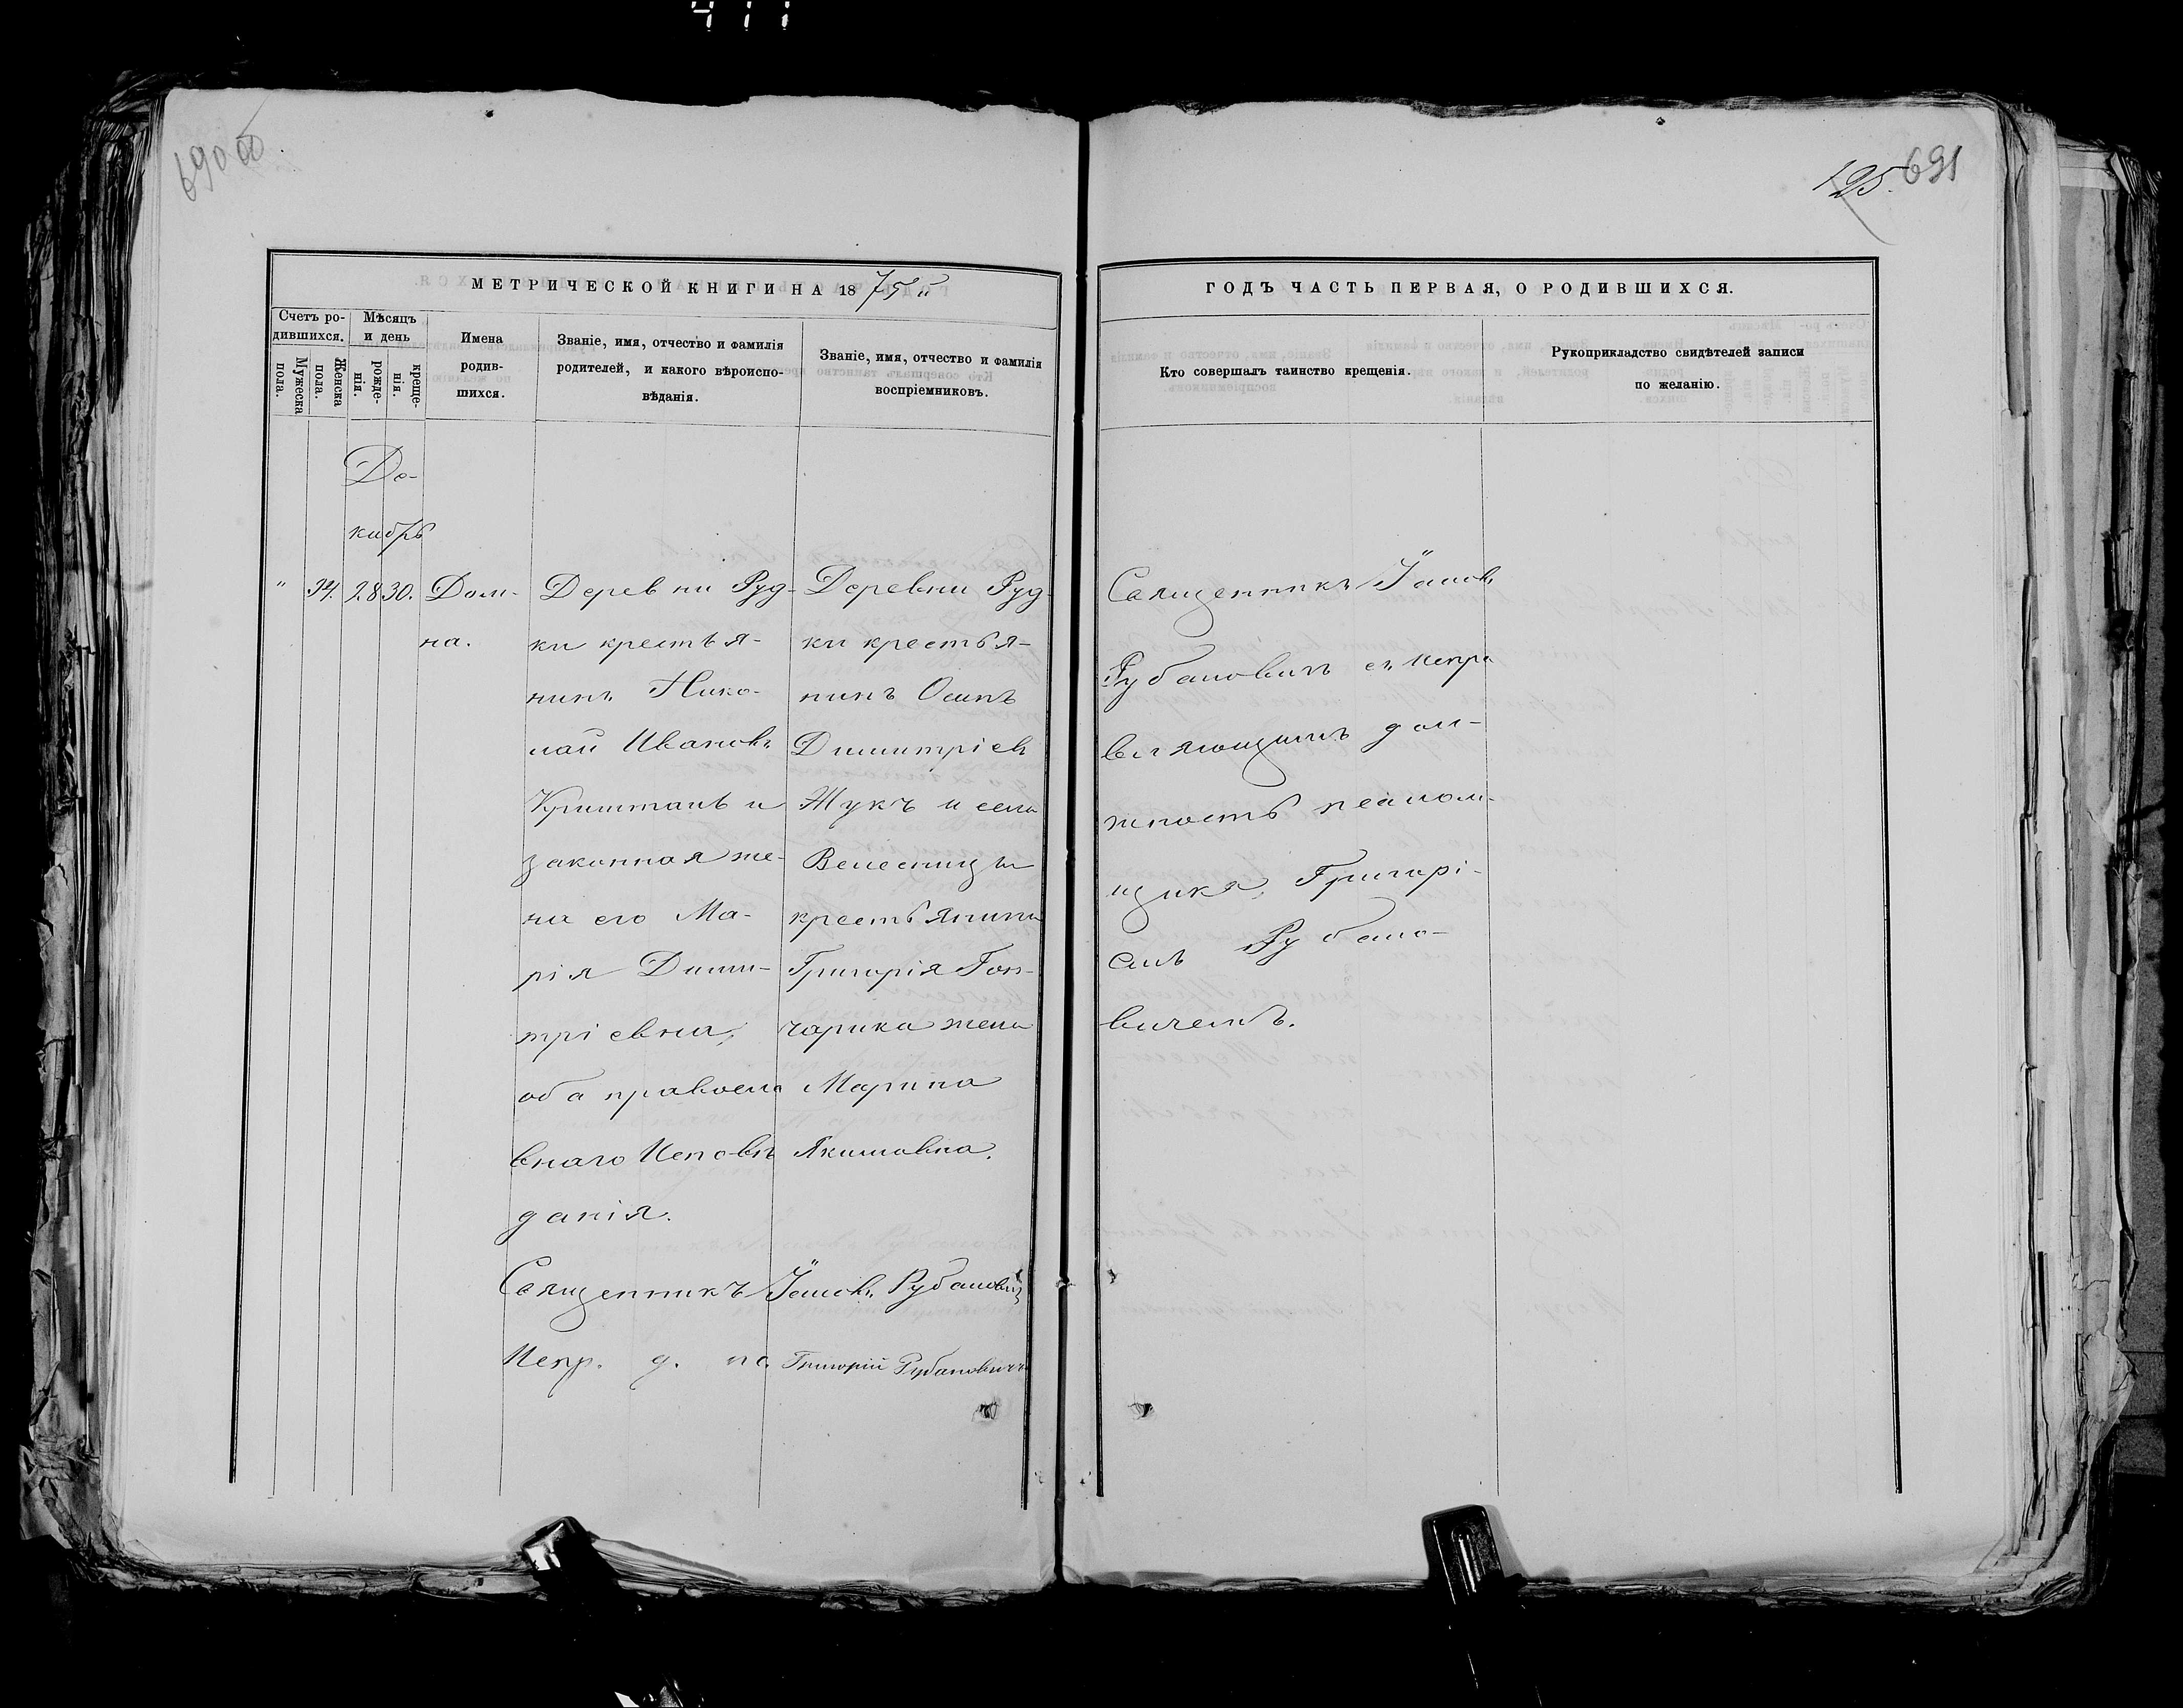 411
690 об
125. 691
МЕТРИЧЕСКОЙ КНИГИ НА 1875й
ГОДЪ ЧАСТЬ ПЕРВАЯ, О РОДИВШИХСЯ.
Счетъ ро-
дившихся.
Мужеска
пола.
Женска
пола.
Мѣсяцъ
и день
рожде-
нія.
креще-
нія.
Имена
родив-
шихся.
Званіе, имя, отчество и фамилія
родителей, и какого вѣроиспо-
вѣданія.
Званіе, имя, отчество и фамилія
воспріемниковъ.
Кто совершалъ таинство крещенія.
Рукоприкладство свидѣтелей записи
по желанію.
Де-
кабрь
" 34. 28 30.
Дом-
на.
Деревни Руд-
ки крестья-
нинъ Нико-
лай Ивановъ
Криштанъ и
законная же-
на его Ма-
рія Дими-
тріевна,
оба правосла
внаго Исповѣ
данія.
Деревни Руд-
ки крестья-
нинъ Осипъ
Димитріевъ
Жукъ и села
Велесницы
крестьянина
Григорія Гон-
чарика жена
Марина
Якимовна.
Священникъ Іаковъ
Рубановичъ съ Испра
вляющимъ дол-
жность псалом-
щика, Григорі-
емъ Рубано-
вичемъ.
Священникъ Іаковъ Рубановичъ
Испр. д. пс. Григорій Рубановичъ